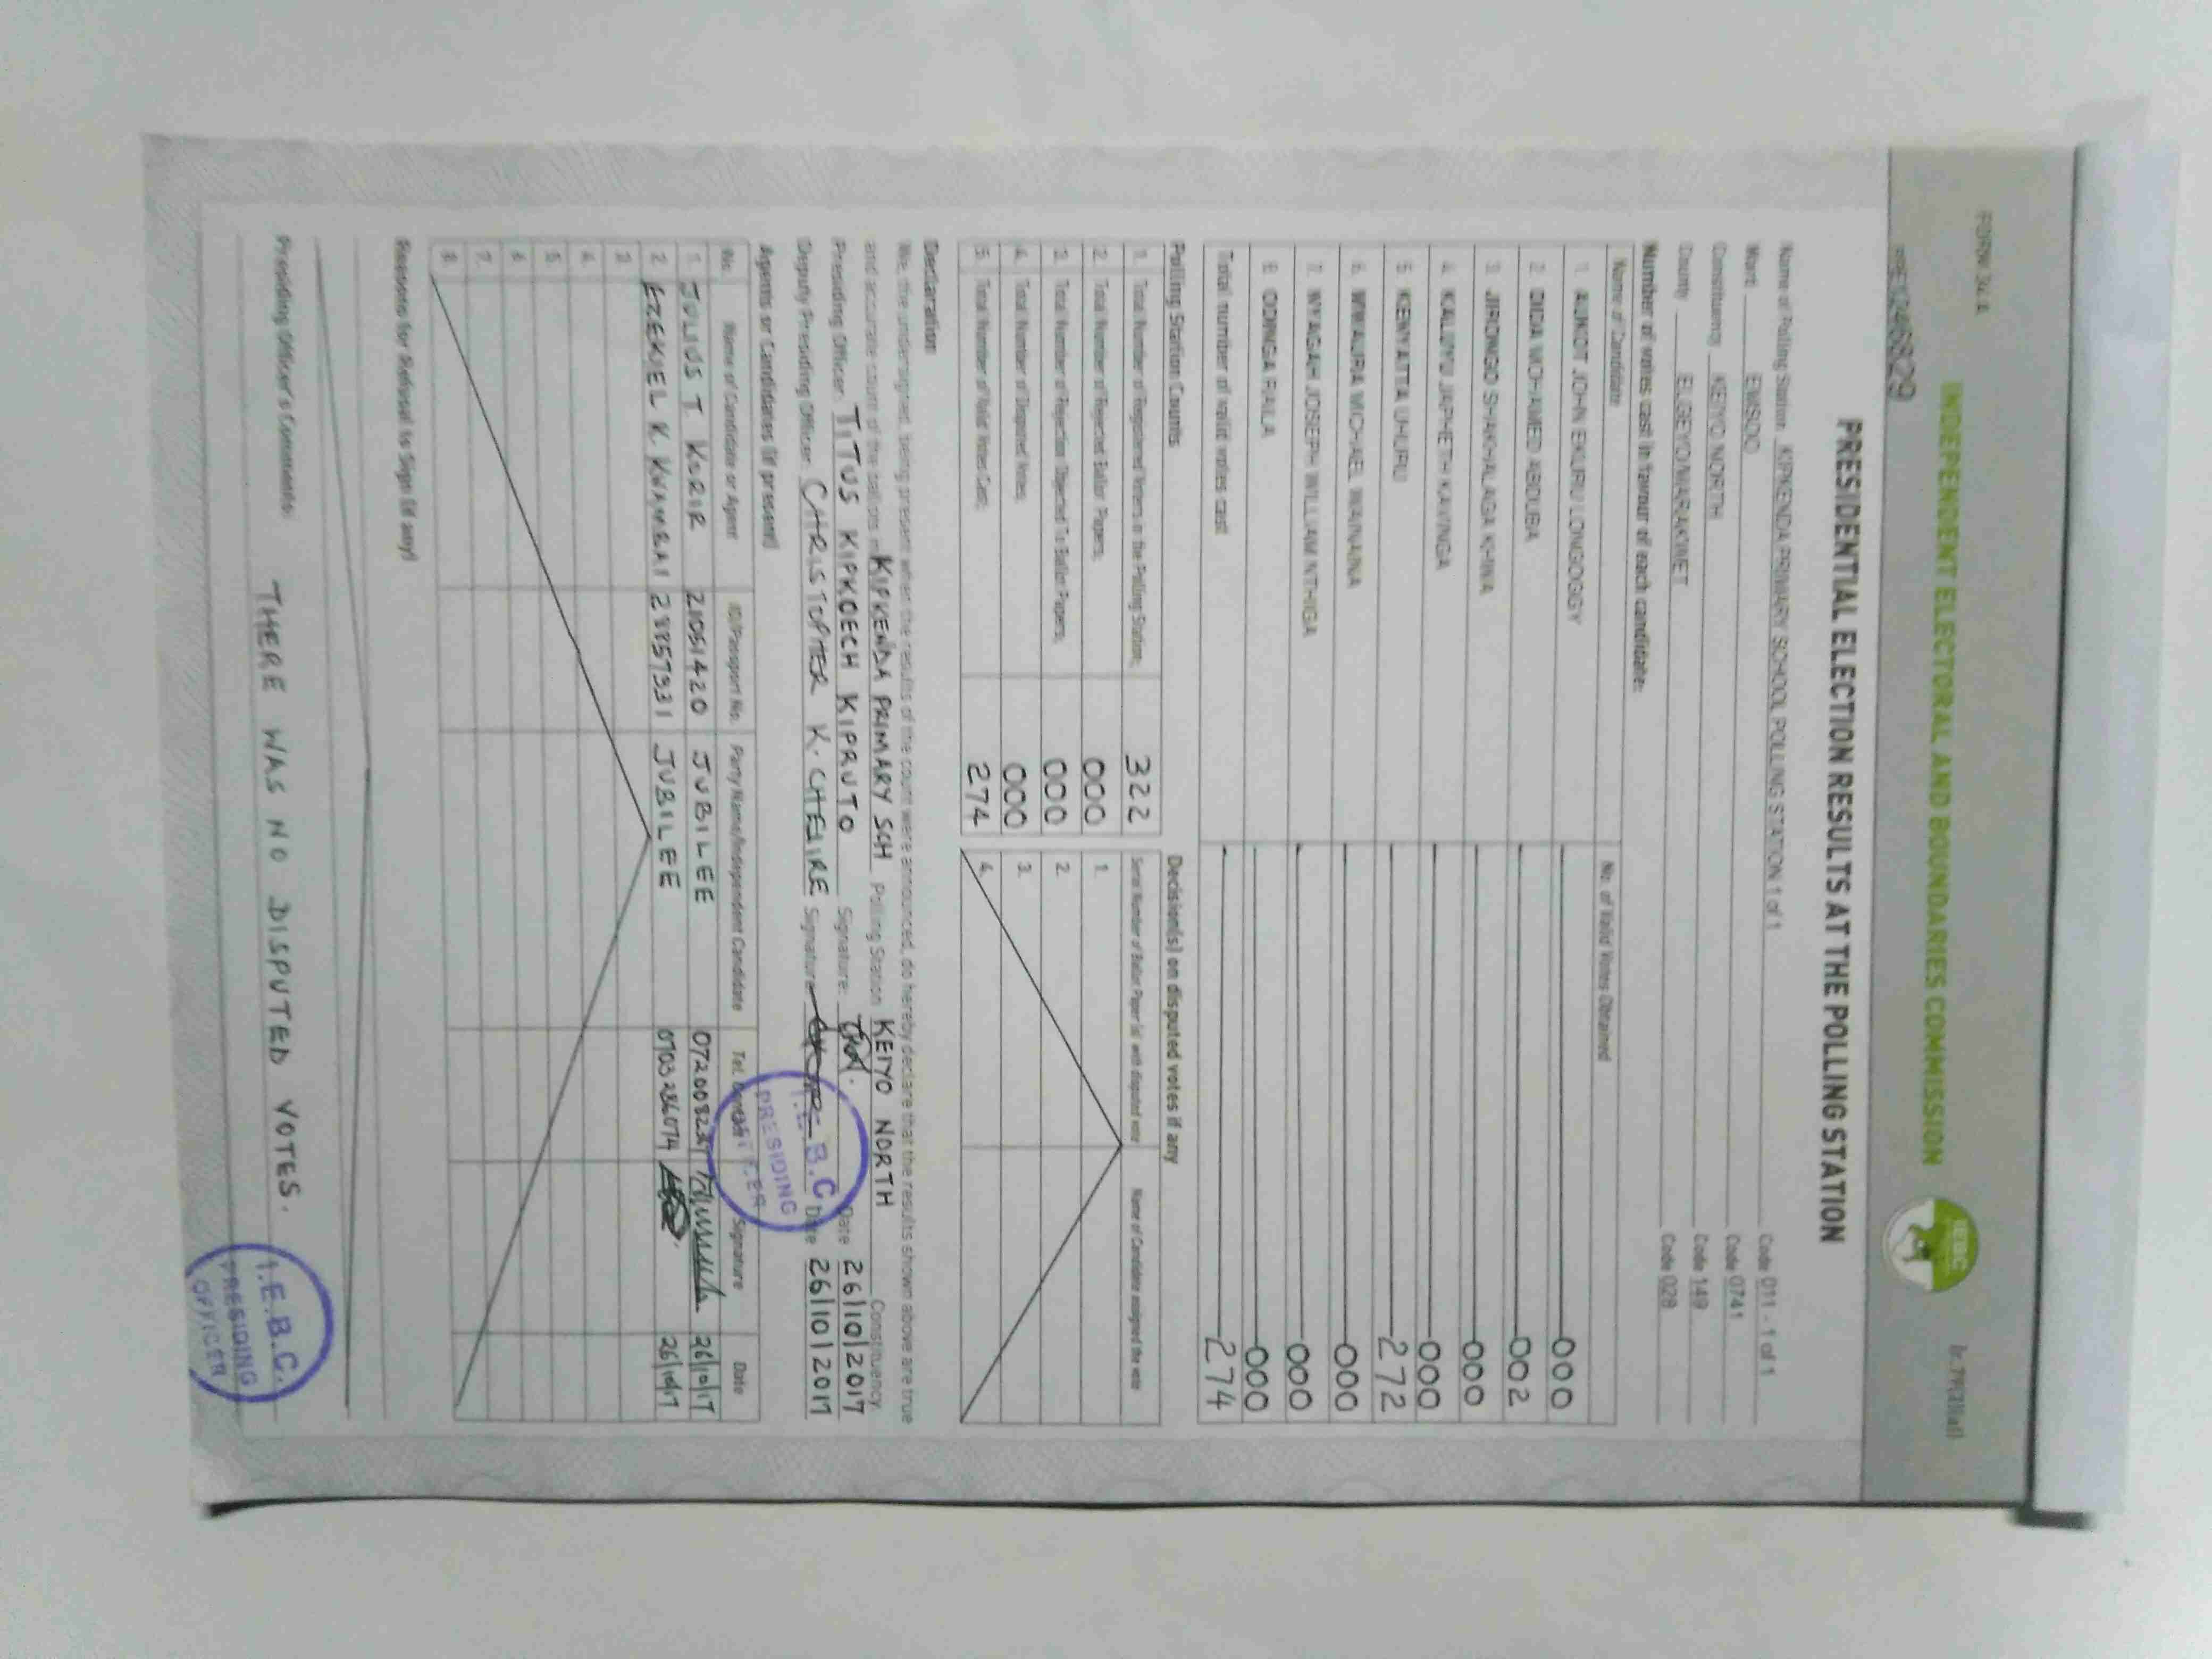 FORM 34 A
INDEPENDENT ELECTORAL AND BOUNDARIES COMMISSION
PRESIDENTIAL ELECTION RESULTS AT THE POLLING STATION
Name of Polling Station KIPKENDA PRIMARY SCHOOL POLLING STATION 1 of 1 Code 011 - 1 of 1
Ward EMSOO Code 0741
Constituency KEIYO NORTH Code 149
County ELGEYO/MARAKWET Code 028
Number of votes cast in favour of each candidate:
Name of Candidate No. of Valid Votes Obtained
1. AUKOT JOHN EKURU LONGOGGY 000
2. DIDA MOHAMED ABDUBA 002
3. JIRONGO SHAKHALAGA KHWA 000
4. KALUYU JAPHETH KAVINGA 000
5. KENYATTA UHURU 272
6. MWAURA MICHAEL WAINAINA 000
7. NYAGAH JOSEPH WILLIAM NTHIGA 000
8. ODINGA RAILA 000
Total number of valid votes cast 274
Polling Station Counts
1. Total Number of Registered Voters in the Polling Station: 322
2. Total Number of Rejected Ballot Papers: 000
3. Total Number of Rejection Objected To Ballot Papers: 000
4. Total Number of Disputed Votes: 000
5. Total Number of Valid Votes Cast: 274
Decision(s) on disputed votes if any
Serial Number of Ballot Paper (s) with disputed vote Name of Candidate assigned the vote
1.
2.
3.
4.
Declaration
We, the undersigned, being present when the results of the count were announced, do hereby declare that the results shown above are true
and accurate count of the ballots in KIPKENDA PRIMARY SCH Polling Station KEIYO NORTH Constituency.
Presiding Officer: TITUS KIPKOECH KIPRUTO Signature: Date 26/10/2017
Deputy Presiding Officer: CHRISTOPHER K. Signature: Date 26/10/2017
I.E.B.C
PRESIDING
OFFICER
Agents or Candidates (if present)
No. Name of Candidate or Agent ID/Passport No. Party Name/Independent Candidate Tel. Contact Signature Date
1. JULIUS T. KORIR 21051420 JUBILEE 26/10/17
2. EZEKIEL K. KWAMBAI JUBILEE 0703286074 26/10/17
3
4.
5.
6
7.
8.
Reasons for Refusal to Sign (if any)
Presiding Officer's Comments: THERE WAS NO DISPUTED VOTES.
I.E.B.C.
PRESIDING
OFFICER